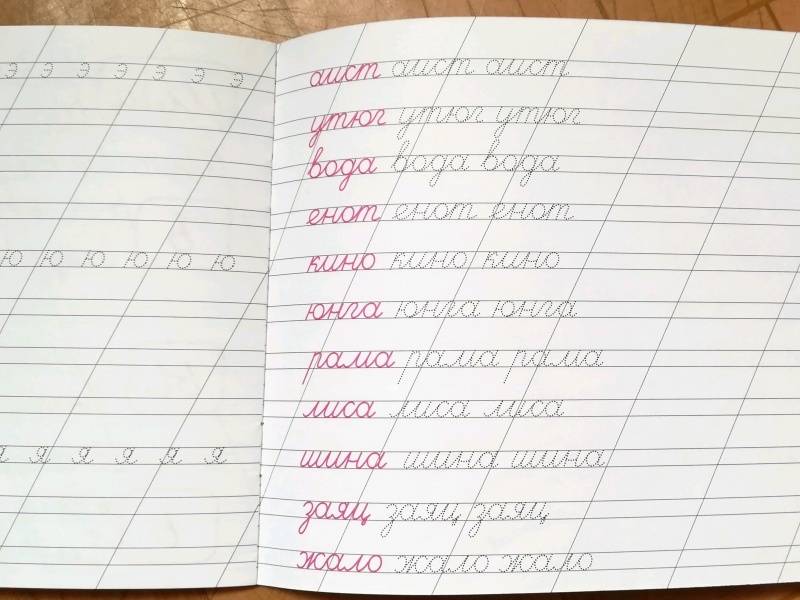 э э э э э э э
ю ю ю ю ю ю
я я я я я я
аист аист аист
утюг утюг утюг
вода вода вода
енот енот енот
кино кино кино
юнга юнга юнга
рама рама рама
лиса лиса лиса
шина шина шина
заяц заяц заяц
жало жало жало